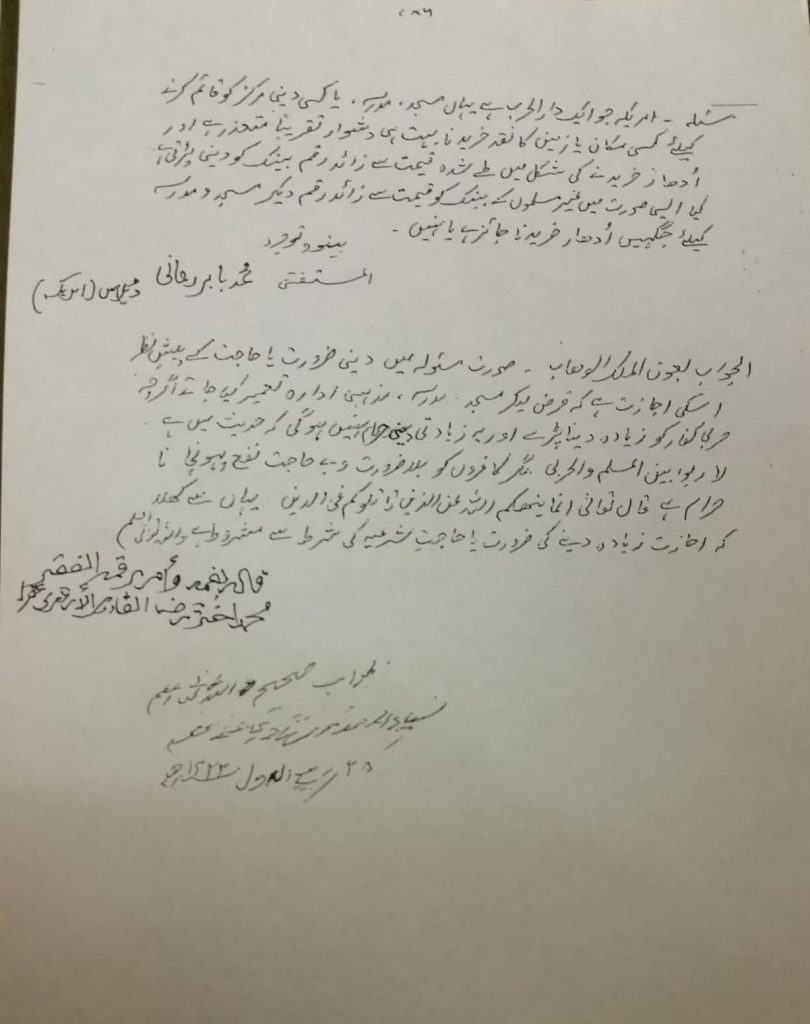 ۷۸۶
مسئلہ ۔ امریکہ جو ایک دار الحرب ہے یہاں مسجد، مدرسہ، یا کسی دینی مرکز کو قائم کرنے
کیلئے کسی مکان یا زمین کا نقد خریدنا بہت ہی دشوار تقریباً متعذر ہے اور
اُدھار خریدنے کی شکل میں طے شدہ قیمت سے زائد رقم بینک کو دینی پڑتی ہے
کیا ایسی صورت میں غیر مسلموں کے بینک کو قیمت سے زائد رقم دیکر مسجد و مدرسہ
کیلئے جگہیں اُدھار خریدنا جائز ہے یا نہیں ۔
بینوا توجروا
المستفتی محمد بابر رحمانی ڈیلاس (امریکہ)
الجواب بعون الملک الوھاب ۔ صورت مسئولہ میں دینی ضرورت یا حاجت کے پیش نظر
اسکی اجازت ہے کہ قرض لیکر مسجد، مدرسہ، مذہبی ادارہ تعمیر کیے جائے اگرچہ
حربی کفار کو زیادہ دینا پڑے اور یہ زیادتی حرام نہیں ہوگی کہ حدیث میں ہے
لا ربوا بین المسلم والحربی مگر کافروں کو بلا ضرورت و بے حاجت نفع پہونچانا
حرام ہے قال تعالیٰ انما ینھکم اللہ عن الذین قاتلوکم فی الدین یہاں سے کھلا
کہ اجازت زیادہ دینے کی ضرورت یا حاجت شرعیہ کی شرط سے مشروط ہے واللہ تعالیٰ اعلم
قال بفمہ وأمر برقمہ الفقیر
محمد اختر رضا القادری الأزھری غفرلہ
الجواب صحیح واللہ تعالیٰ اعلم
ضیاء المصطفیٰ قادری عفی عنہ
۲۵ ربیع الاول ۱۴۲۲ھ